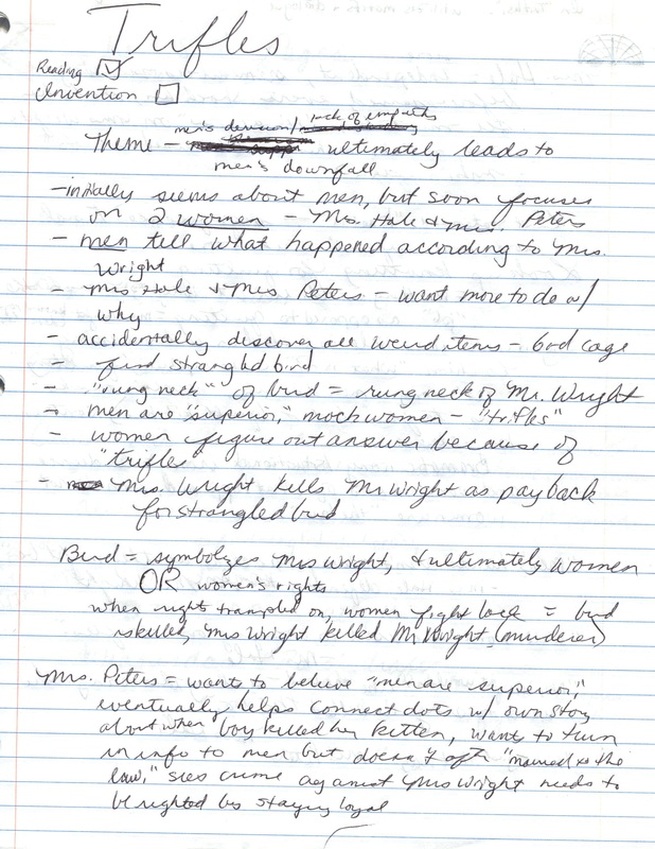 Trifles
Reading ☑
Invention ☐
men's derision/ lack of empathy
Theme - ultimately leads to
men's downfall
- initially seems about men, but soon focuses
on 2 women - Mrs. Hale & Mrs. Peters
- men tell what happened according to Mrs.
Wright
- Mrs Hale & Mrs. Peters - want more to do w/
why
- accidentally discover all weird items - bird cage
- find strangled bird
- "rung neck" of bird = rung neck of Mr. Wright
- men are "superior," mock women - "trifles"
- women figure out answer because of
"trifle"
- Mrs. Wright kills Mr Wright as payback
for strangled bird
Bird = symbolizes Mrs Wright, & ultimately women
OR women's rights
when rights trampled on, women fight back = bird
is killed, Mrs Wright killed Mr Wright (murderer)
Mrs. Peters = wants to believe "men are superior,"
eventually helps connect dots w/ own story
about when boy killed her kitten, want to turn
in info to men but doesn't "married to the
law," sees crime against Mrs Wright needs to
be righted by staying loyal